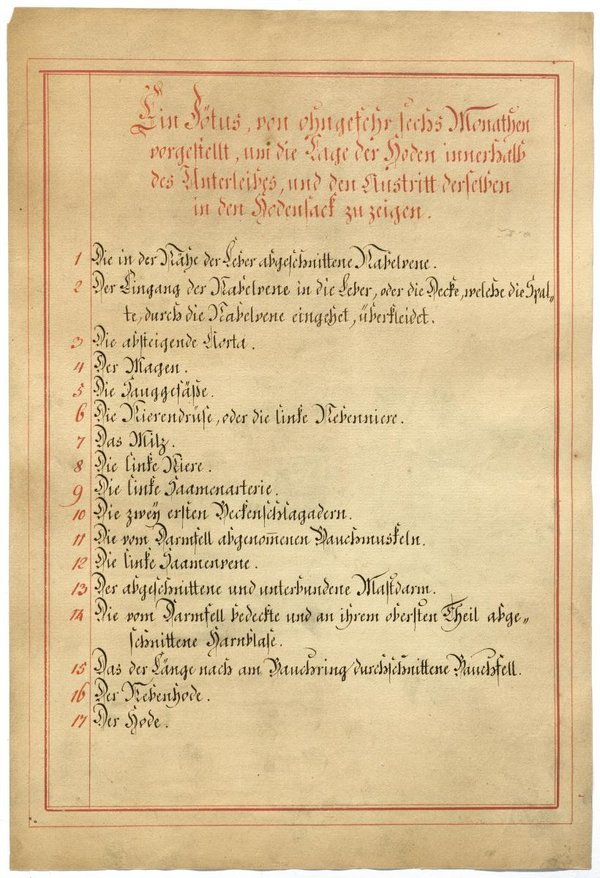 Ein Fötus, von ohngefehr sechs Monathen
vorgestellt, um die Lage der Hoden innerhalb
des Unterleibes, und den Austritt derselben
in den Hodensack zu zeigen.
1 Die in der Nähe der Leber abgeschnittene Nabelvene.
2 Der Eingang der Nabelvene in die Leber, oder die Decke, welche die Spal=
te, durch die Nabelvene eingehet, überkleidet.
3 Die absteigende Aorta.
4 Der Magen.
5 Die Sauggefäße.
6 Die Nierendrüse, oder die linke Nebenniere.
7 Das Milz.
8 Die linke Niere.
9 Die linke Saamenarterie.
10 Die zwey ersten Beckenschlagadern.
11 Die vom Darmfell abgenom̅enen Bauchmuskeln.
12 Die linke Saamenvene.
13 Der abgeschnittene und unterbundene Mastdarm.
14 Die vom Darmfell bedeckte und an ihrem obersten Theil abge=
schnittene Harnblase.
15 Das der Länge nach am Bauchring durchschnittene Bauchfell.
16 Der Nebenhode.
17 Der Hode.